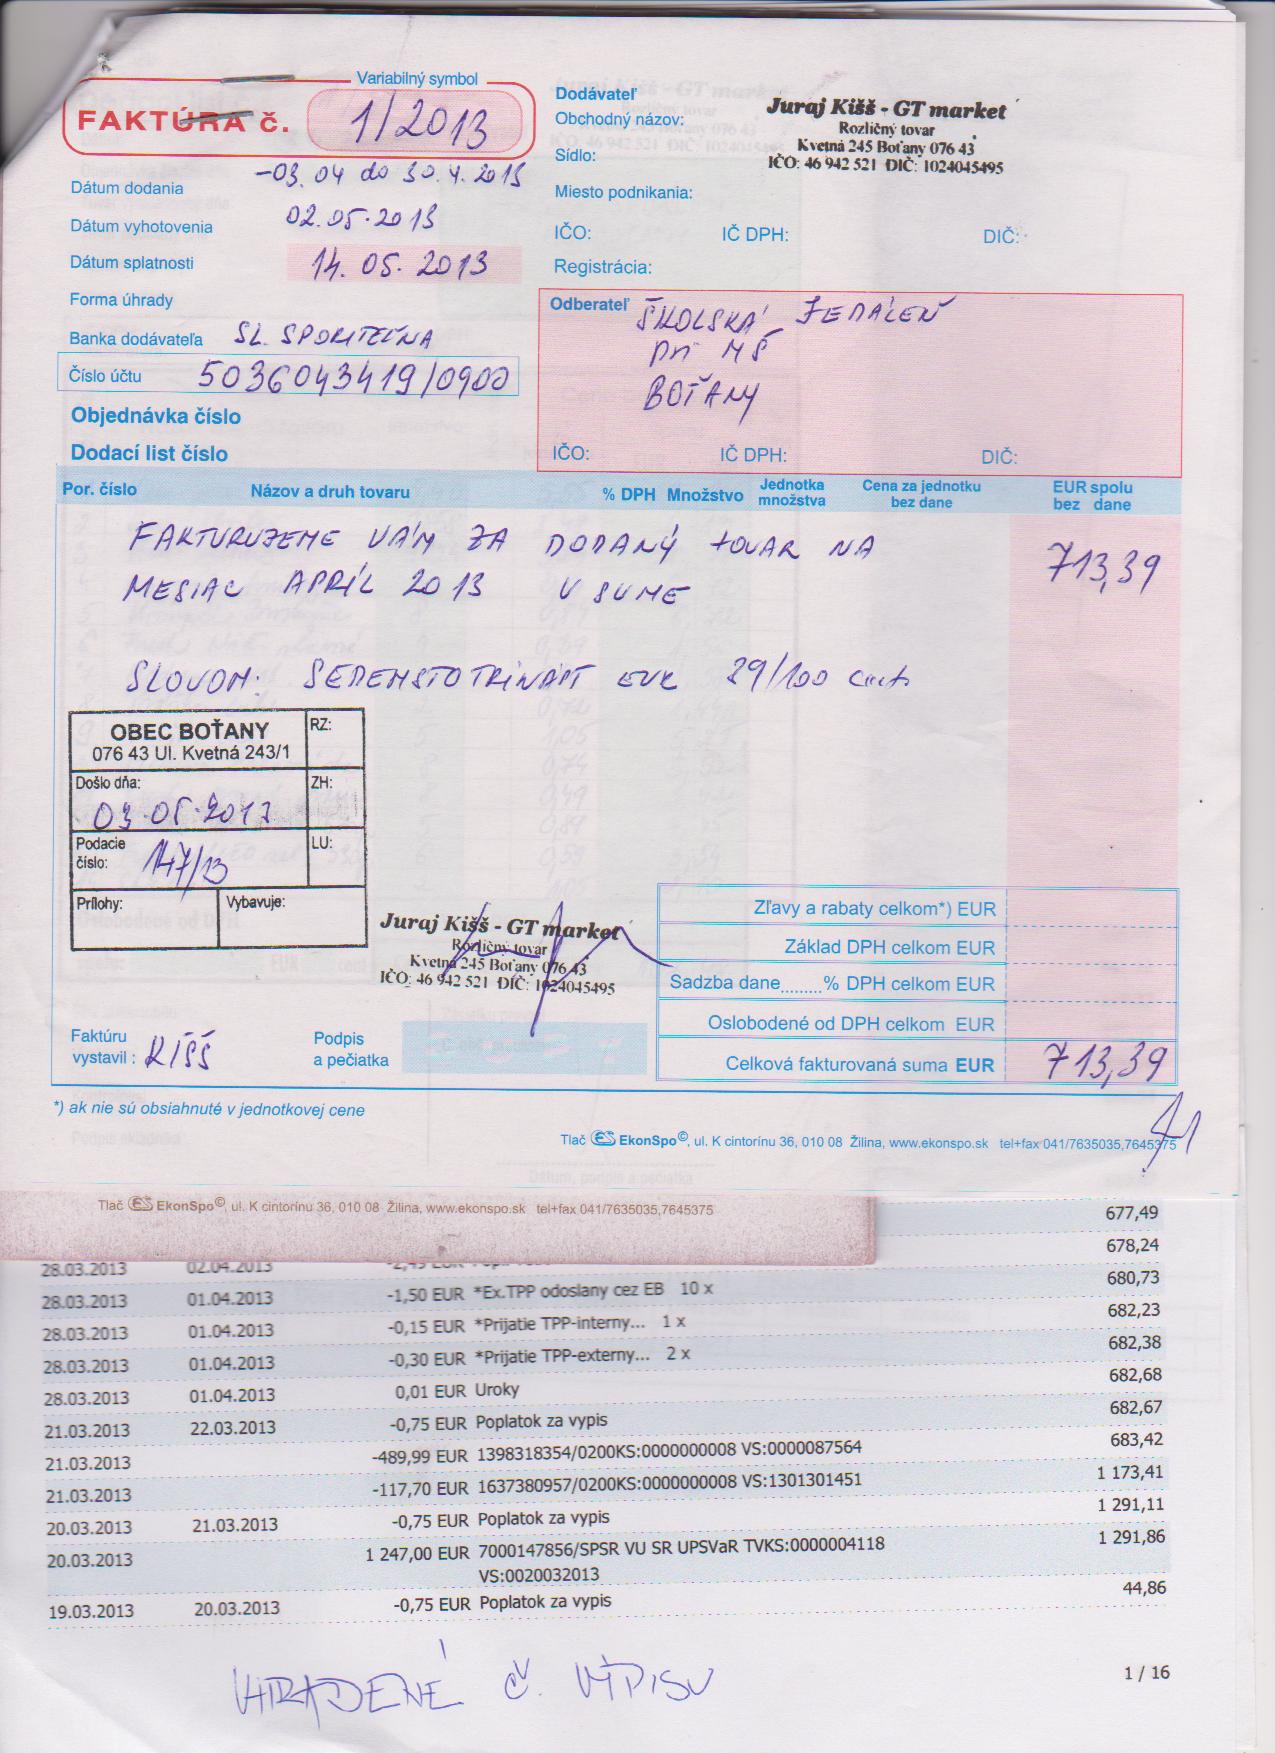 Variabilný symbol
FAKTÚRA č. 1/2013
Dátum dodania -03.04 do 30.4.2013
Dátum vyhotovenia 02.05.2013
Dátum splatnosti 14.05.2013
Forma úhrady
Banka dodávateľa SL. SPORITEĽNA
Číslo účtu 5036043419/0900
Objednávka číslo
Dodací list číslo
Dodávateľ
Obchodný názov:
Sídlo:
Miesto podnikania:
IČO: IČ DPH: DIČ:
Registrácia:
Juraj Kišš - GT market
Rozličný tovar
Kvetná 245 Boťany 076 43
IČO: 46 942 521 DIČ: 1024045495
Odberateľ ŠKOLSKÁ JEDÁLEŇ
pri MŠ
BOŤANY
IČO: IČ DPH: DIČ:
Por. číslo Názov a druh tovaru % DPH Množstvo Jednotka množstva Cena za jednotku bez dane EUR spolu bez dane
FAKTURUJEME VÁM ZA DODANÝ TOVAR NA
MESIAC APRÍL 2013 V SUME 713,39
SLOVOM: SEDEMSTOTRINÁSŤ EUR 39/100 cent
OBEC BOŤANY
076 43 Ul. Kvetná 243/1
RZ:
Došlo dňa: 03.05.2013
ZH:
Podacie číslo: 147/13
LU:
Prílohy: Vybavuje:
Juraj Kišš - GT market
Rozličný tovar
Kvetná 245 Boťany 076 43
IČO: 46 942 521 DIČ: 1024045495
Zľavy a rabaty celkom*) EUR
Základ DPH celkom EUR
Sadzba dane.........% DPH celkom EUR
Oslobodené od DPH celkom EUR
Celková fakturovaná suma EUR 713,39
Faktúru vystavil : KIŠŠ
Podpis a pečiatka
*) ak nie sú obsiahnuté v jednotkovej cene
Tlač EkonSpo©, ul. K cintorínu 36, 010 08 Žilina, www.ekonspo.sk tel+fax 041/7635035,7645375
Tlač EkonSpo©, ul. K cintorínu 36, 010 08 Žilina, www.ekonspo.sk tel+fax 041/7635035,7645375
677,49
678,24
28.03.2013 02.04.2013 -2,49 EUR 680,73
28.03.2013 01.04.2013 -1,50 EUR *Ex.TPP odoslany cez EB 10 x 682,23
28.03.2013 01.04.2013 -0,15 EUR *Prijatie TPP-interny... 1 x 682,38
28.03.2013 01.04.2013 -0,30 EUR *Prijatie TPP-externy... 2 x 682,68
28.03.2013 01.04.2013 0,01 EUR Uroky 682,67
21.03.2013 22.03.2013 -0,75 EUR Poplatok za vypis 683,42
21.03.2013 -489,99 EUR 1398318354/0200KS:0000000008 VS:0000087564 1 173,41
21.03.2013 -117,70 EUR 1637380957/0200KS:0000000008 VS:1301301451 1 291,11
20.03.2013 21.03.2013 -0,75 EUR Poplatok za vypis 1 291,86
20.03.2013 1 247,00 EUR 7000147856/SPSR VU SR UPSVaR TVKS:0000004118
VS:0020032013 44,86
19.03.2013 20.03.2013 -0,75 EUR Poplatok za vypis
UHRADENÉ Č. VÝPISU
1 / 16